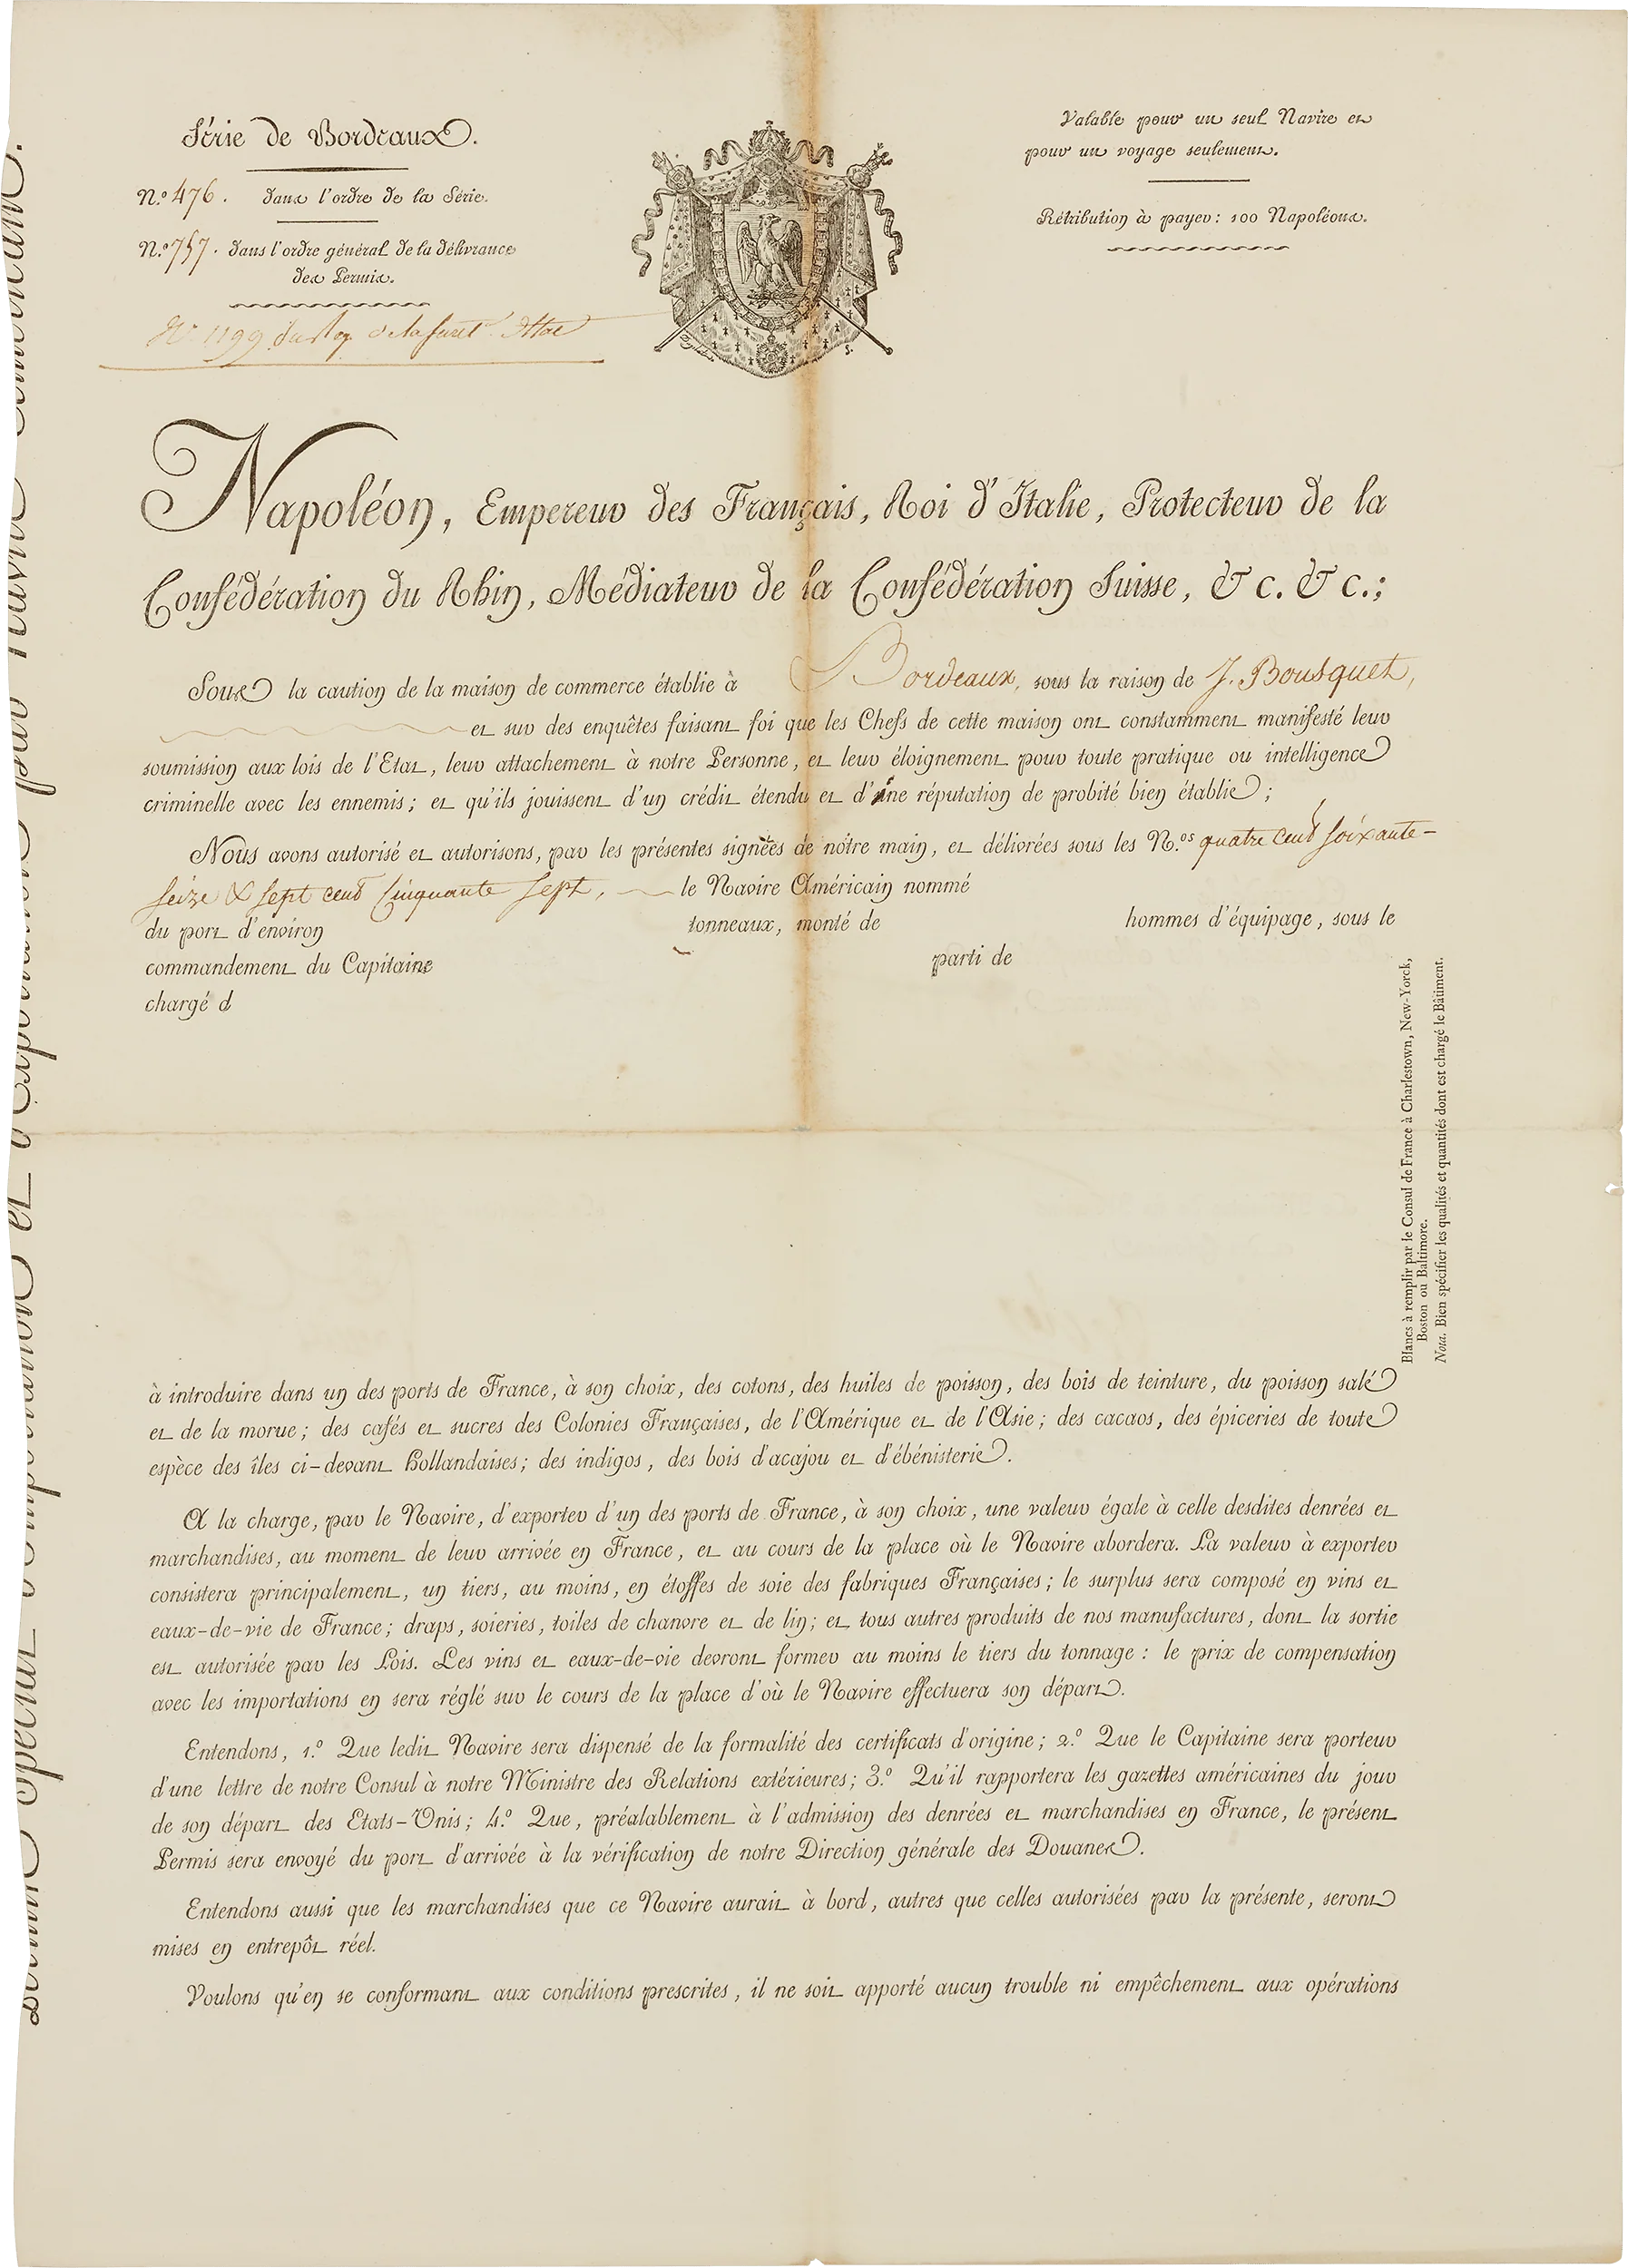 Série de Bordeaux.
N.º 476. dans l'ordre de la Série.
N.º 757. dans l'ordre général de la délivrance
des Permis.
Nº 1199
Valable pour un seul Navire et
pour un voyage seulement.
Rétribution à payer : 100 Napoléons.
Napoléon, Empereur des Français, Roi d'Italie, Protecteur de la
Confédération du Rhin, Médiateur de la Confédération Suisse, &c. &c.;
Sous la caution de la maison de commerce établie à Bordeaux, sous la raison de J. Bousquet,
et sur des enquêtes faisant foi que les Chefs de cette maison ont constamment manifesté leur
soumission aux lois de l'Etat, leur attachement à notre Personne, et leur éloignement pour toute pratique ou intelligence
criminelle avec les ennemis; et qu'ils jouissent d'un crédit étendu et d'une réputation de probité bien établie;
Nous avons autorisé et autorisons, par les présentes signées de notre main, et délivrées sous les N.os quatre cent soixante-
seize & sept cent cinquante sept, le Navire Américain nommé
du port d'environ tonneaux, monté de hommes d'équipage, sous le
commandement du Capitaine parti de
chargé d
Blancs à remplir par le Consul de France à Charlestown, New-Yorck,
Boston ou Baltimore.
Nota. Bien spécifier les qualités et quantités dont est chargé le Bâtiment.
à introduire dans un des ports de France, à son choix, des cotons, des huiles de poisson, des bois de teinture, du poisson salé
et de la morue; des cafés et sucres des Colonies Françaises, de l'Amérique et de l'Asie; des cacaos, des épiceries de toute
espèce des îles ci-devant Hollandaises; des indigos, des bois d'acajou et d'ébénisterie.
A la charge, par le Navire, d'exporter d'un des ports de France, à son choix, une valeur égale à celle desdites denrées et
marchandises, au moment de leur arrivée en France, et au cours de la place où le Navire abordera. La valeur à exporter
consistera principalement, un tiers, au moins, en étoffes de soie des fabriques Françaises; le surplus sera composé en vins et
eaux-de-vie de France; draps, soieries, toiles de chanvre et de lin; et tous autres produits de nos manufactures, dont la sortie
est autorisée par les Lois. Les vins et eaux-de-vie devront former au moins le tiers du tonnage : le prix de compensation
avec les importations en sera réglé sur le cours de la place d'où le Navire effectuera son départ.
Entendons, 1.º Que ledit Navire sera dispensé de la formalité des certificats d'origine; 2.º Que le Capitaine sera porteur
d'une lettre de notre Consul à notre Ministre des Relations extérieures; 3.º Qu'il rapportera les gazettes américaines du jour
de son départ des Etats-Unis; 4.º Que, préalablement à l'admission des denrées et marchandises en France, le présent
Permis sera envoyé du port d'arrivée à la vérification de notre Direction générale des Douanes.
Entendons aussi que les marchandises que ce Navire aurait à bord, autres que celles autorisées par la présente, seront
mises en entrepôt réel.
Voulons qu'en se conformant aux conditions prescrites, il ne soit apporté aucun trouble ni empêchement aux opérations